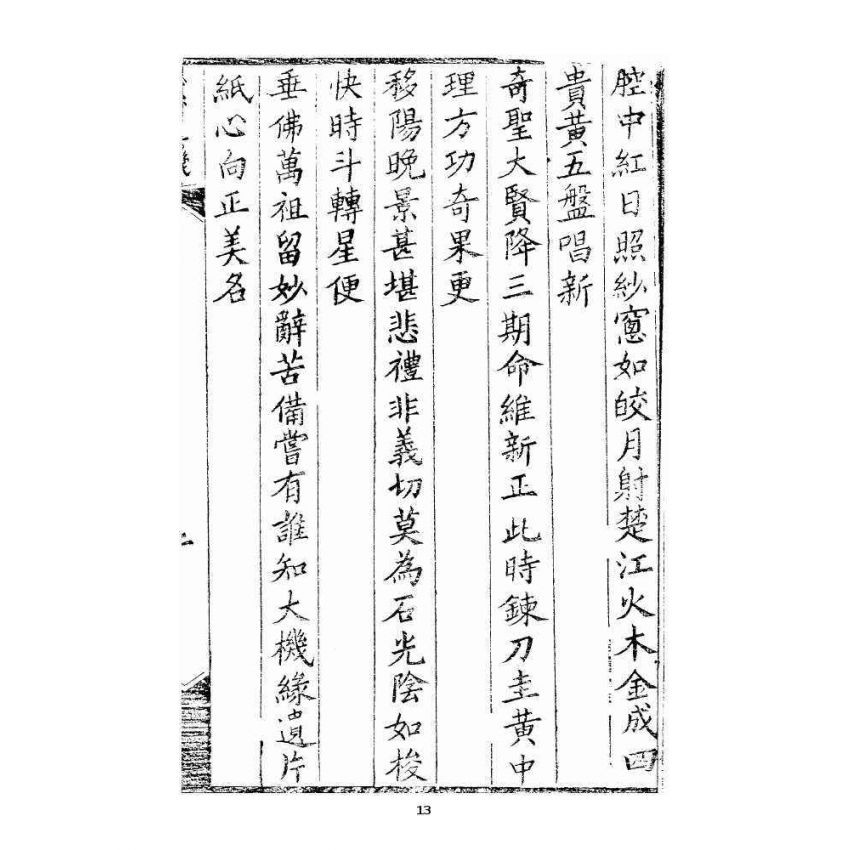 腔中紅日照紗窻如皎月射楚江火木金成四
貴黃五盤唱新
奇聖大賢降三期命維新正此時鍊刀圭黃中
理方功奇果更
移陽晚景甚堪悲禮非義切莫為石光陰如梭
快時斗轉星便
垂佛萬祖留妙辭苦備嘗有誰知大機緣遺片
紙心向正美名
13